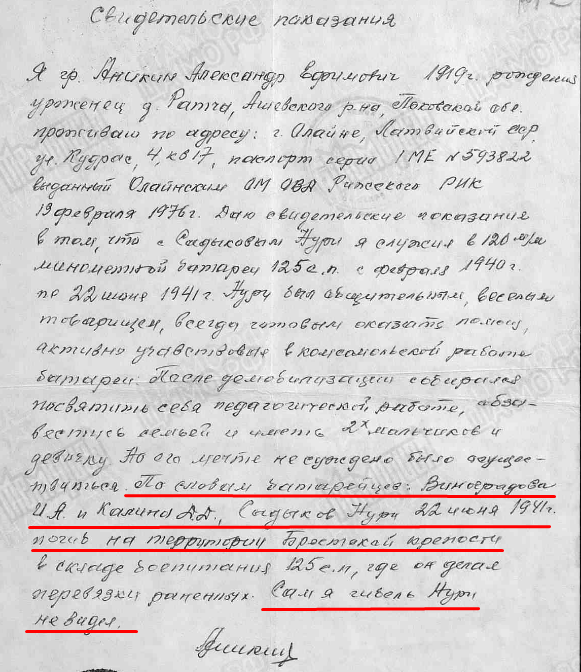 Свидетельские показания
Я гр. Аникин Александр Ефимович 1919г. рождения
уроженец д. Ратча, Ашевского р-на, Псковской обл.
проживаю по адресу: г. Олайне, Латвийской ССР,
ул. Кудрас, 4, кв 17, паспорт серии I МЕ N 593822
выданный Олайнским ОМ ОВД Рижского РИК
19 февраля 1976г. Даю свидетельские показания
в том, что с Садыковым Нури я служил в 120 м/м
минометной батареи 125 с.п. с февраля 1940г.
по 22 июня 1941г. Нури был общительным, веселым
товарищем, всегда готовым оказать помощь,
активно участвовал в комсомольской работе
батареи. После демобилизации собирался
посвятить себя педагогической работе, обза-
вестись семьей и иметь 2х мальчиков и
девочку. Но его мечте не суждено было осущес-
твиться. По словам батарейцев: Виноградова
И.А. и Калина Д.Д., Садыков Нури 22 июня 1941г.
погиб на территории Брестской крепости
в складе боепитания 125 с.п., где он делал
перевязки раненных. Сам я гибель Нури
не видел.
Аникин